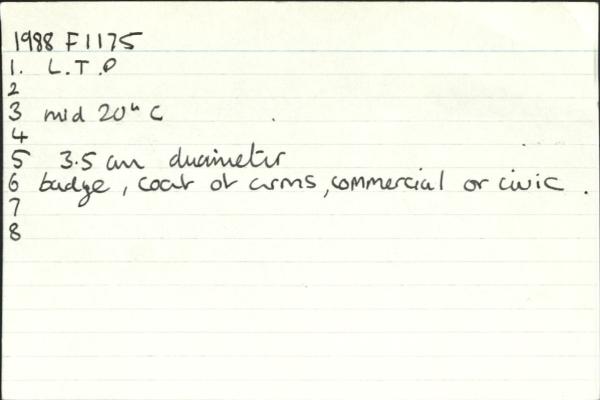 1988 F1175
1. L.T.P
2
3 mid 20th C
4
5 3.5 cm diameter
6 badge, coat of arms, commercial or civic.
7
8